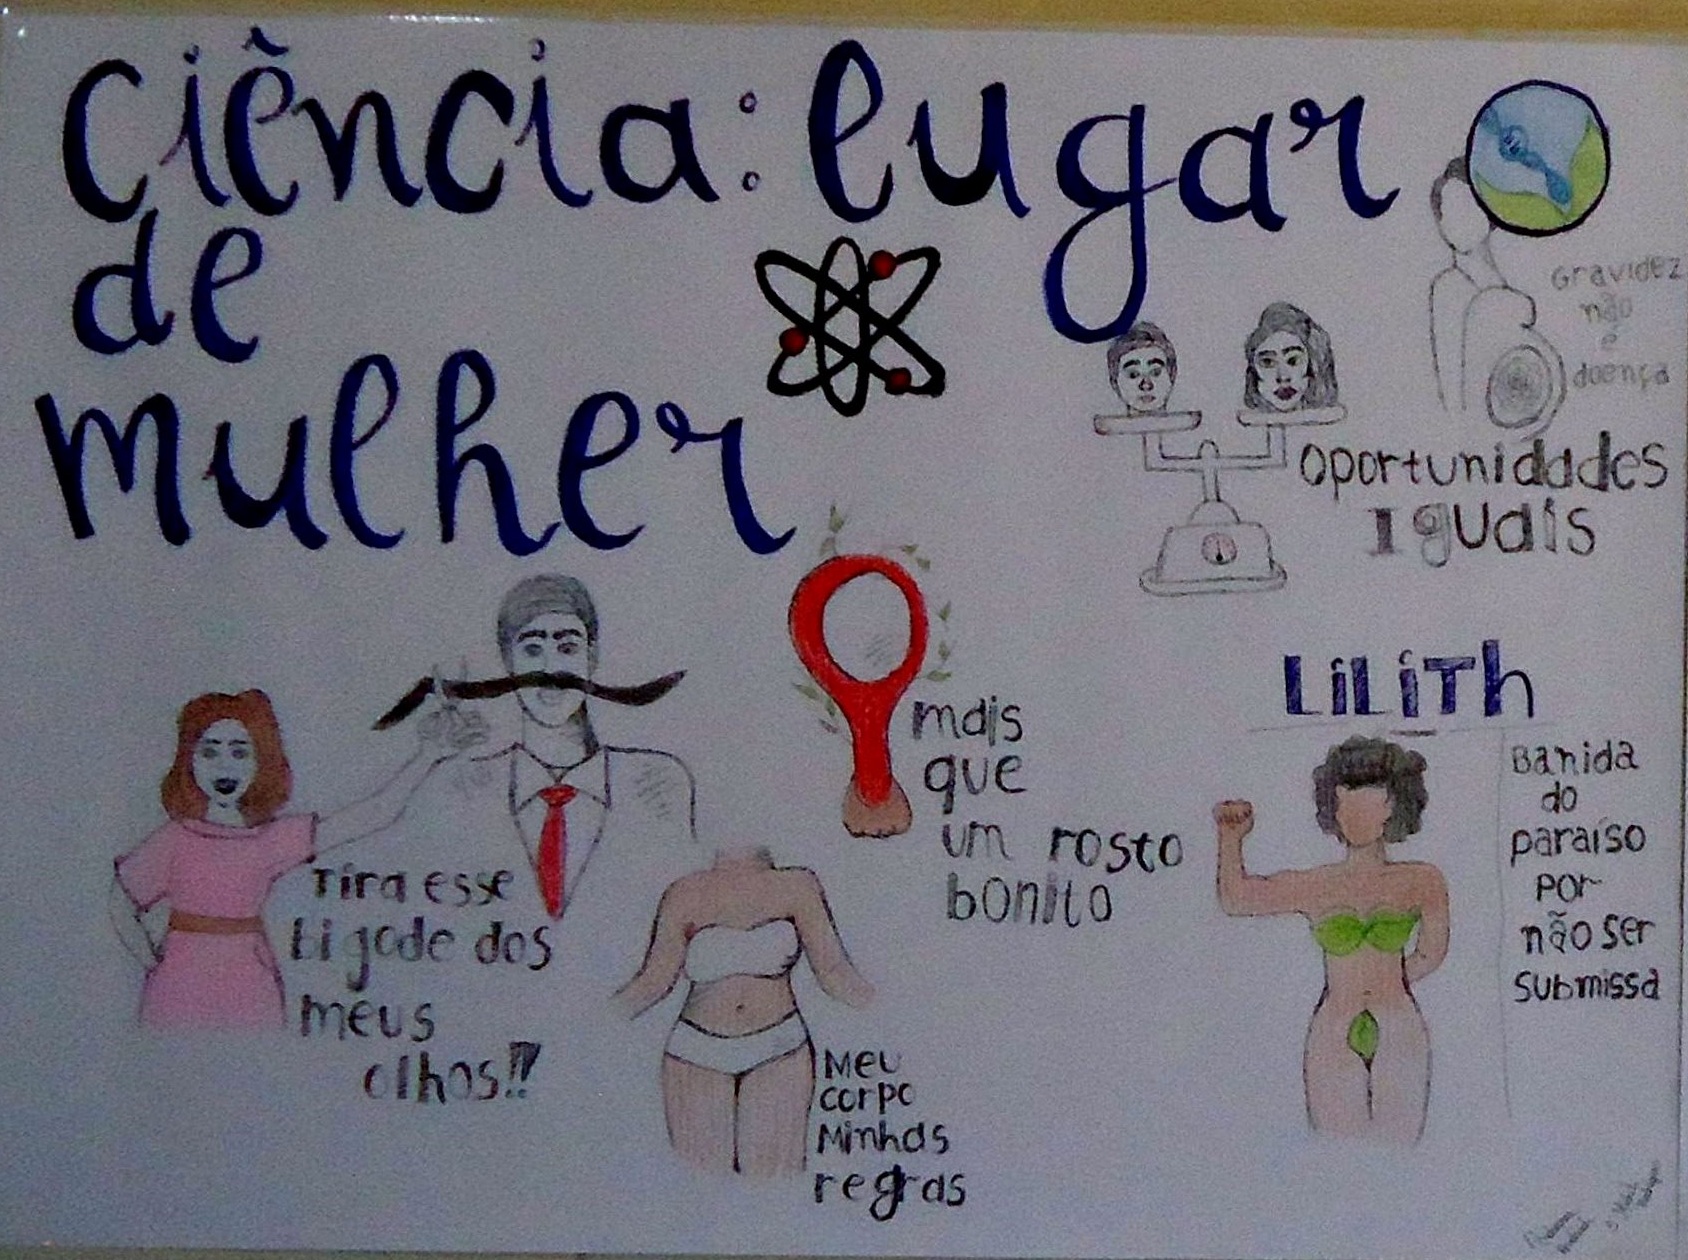 Ciência: lugar
de
mulher
Gravidez
não
é
doença
Oportunidades
Iguais
Tira esse
bigode dos
meus
olhos!!
mais
que
um rosto
bonito
Meu
corpo
Minhas
regras
LiLiTh
Banida
do
paraíso
por
não ser
submissa